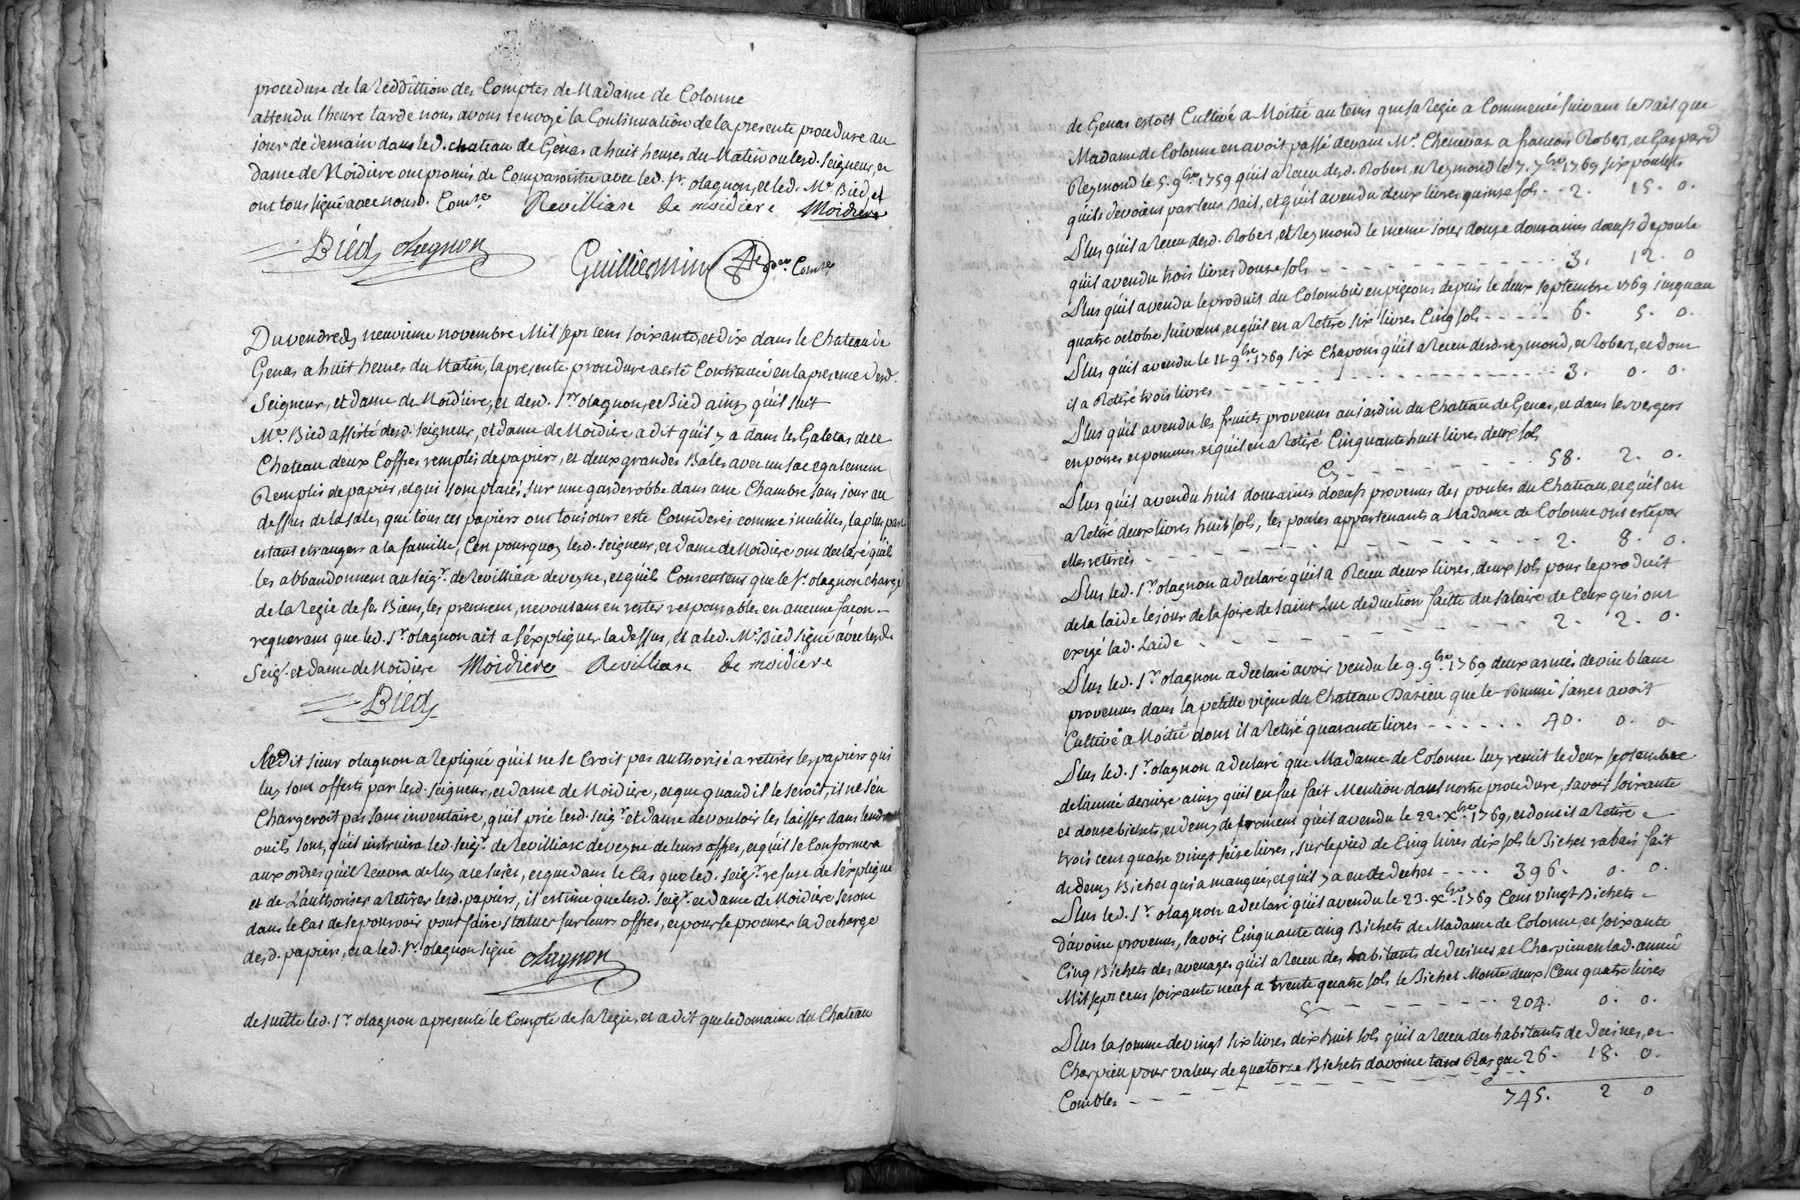 procedure de la Reddittion des Comptes de Madame de Colonne
attendu l'heure tarde nous avons renvoyé la Continuation de la presente procedure au
jour de demain dans led. chateau de Genas a huit heures du Matin ou lesd. seigneur, et
dame de Moidiere ont promis de Comparoitre avec led. Sr. olagnon, et led. Me. Bied, et
ont tous signé avec nousd. Comre. Revilliasc de moidiere Moidiere
Bied, olagnon Guillermin Comre
Du vendredy neuvieme novembre Mil sept cens soixante, et dix dans le Chateau de
Genas a huit heures du Matin, la presente procedure a esté Continuée en la presence desd.
Seigneur, et dame de Moidiere, et desd. Srs olagnon, et Bied ainsy qu'il suit
Me. Bied assisté desd. seigneur, et dame de Moidiere a dit qu'il y a dans les Galetas de ce
Chateau deux Coffres remplis de papiers, et deux grandes Bales avec un sac egalement
Remplis de papier, et qui sont placés sur une garderobbe dans une Chambre sans jour au
dessus de la sale, que tous ces papiers ont toujours esté Considerés comme inutilles, la plus part
estant etrangers a la famille, C'est pourquoy lesd. seigneur, et dame de Moidiere ont declaré qu'ils
les abbandonnent au seigr. de Revilliasc de veyne, et qu'ils Consentent que le Sr. olagnon chargé
de la Regie de ses Biens, les prennent, ne voulant en rester responsables en aucune façon
requerant que led. Sr. olagnon ait a s'expliquer la dessus, et a led. Me. Bied signé avec lesd.
Seigr. et dame de Moidiere Moidiere Revilliasc de moidiere
Bied
Ledit sieur olagnon a Repliqué qu'il ne se Croit pas authorisé a retirer les papiers qui
luy sont offerts par lesd. seigneur, et dame de Moidiere, et que quand il le seroit, il ne s'en
Chargeroit pas sans inventaire, qu'il prie lesd. seigr. et dame de vouloir les laisser dans l'endroit
ou ils sont, qu'il instruira led. seigr. de Revilliasc de veyne de leurs offres, et qu'il se Conformera
aux ordres qu'il Recevra de luy a ce sujet, et que dans le Cas que led. seigr. refuse de s'expliquer
et de L'authoriser a retirer lesd. papiers, il estime que lesd. seigr. et dame de Moidiere seront
dans le Cas de se pourvoir pour faire statuer sur leurs offres, et pour se procurer la decharge
desd. papiers, et a led. Sr. olagnon signé olagnon
de suitte led. Sr. olagnon a presenté le Compte de sa Regie, et a dit que le domaine du Chateau
de Genas estoit Cultivé a Moitié au tems que sa Regie a Commencé suivant le Bail que
Madame de Colonne en avoit passé devant Me. Chenevas a francois Robert, et Gaspard
Reymond le 5. 9bre. 1759 qu'il a Receu desd. Robert, et Reymond le 7. 7bre 1769 six poulets
qu'ils devoient par leur Bail, et qu'il a vendu deux livres quinse sols - - 2. 15. 0.
Plus qu'il a Receu desd. Robert, et Reymond le meme jour douse domaines d'oeufs de poule
qu'il a vendu trois livres douse sols - - - 3. 12. 0
Plus qu'il a vendu le produit du Colombier en pigeons depuis le deux septembre 1769 jusqu'au
quatre octobre suivant, et qu'il en a Retiré six livres Cinq sols - - - 6. 5. 0.
Plus qu'il a vendu le 11 9bre. 1769 six Chapons qu'il a Receu desd. reymond, et Robert, et dont
il a Retiré trois livres - - - 3. 0. 0.
Plus qu'il a vendu les fruits provenus au jardin du Chateau de Genas, et dans les vergers
en poires et pommes, et qu'il en a Retiré Cinquante huit livres deux sols
Cy - - - 58. 2. 0.
Plus qu'il a vendu huit domaines d'oeufs provenus des poules du Chateau, et qu'il en
a Retiré deux livres huit sols, les poules appartenants a Madame de Colonne ont esté par
Elles retirées - - - 2. 8. 0.
Plus led. Sr. olagnon a declaré qu'il a Receu deux livres, deux sols, pour le produit
de la laide le jour de la foire de saint Luc deduction faitte du salaire de Ceux qui ont
exigé lad. Laide - - - 2. 2. 0.
Plus led. Sr. olagnon a declaré avoir vendu le 9. 9bre 1769 deux asnées de vin blanc
provenus dans la petitte vigne du Chateau Dazieu que le nommé janes avoit
Cultivé a Moitié dont il a Retiré quarante livres - - - 40. 0. 0.
Plus led. Sr. olagnon a declaré que Madame de Colonne luy remit le deux septembre
de l'année derniere ainsy qu'il en fut fait Mention dans nostre procedure, savoir soixante
et douse bichets, et demy de froment qu'il a vendu le 22. Xbre. 1769, et dont il a Retiré
trois cent quatre vingt seise livres, sur le pied de Cinq livres dix sols le Bichet rabais fait
de demy Bichet qui a manqué, et qu'il y a eu de dechet - - - 396. 0. 0.
Plus led. Sr. olagnon a declaré qu'il a vendu le 23. Xbre. 1769 Cent vingt Bichets
d'avoine provenus, savoir Cinquante cinq Bichets de Madame de Colonne, et soixante
Cinq Bichets des avenages qu'il a Receu des habitants de Decines et Charpieu en lad. année
Mil sept cens soixante neuf a trente quatre sols le Bichet Monte deux Cent quatre livres
Cy - - - 204. 0. 0.
Plus la somme de vingt six livres dix huit sols qu'il a Receu des habitants de Decines, et
Charpieu pour valeur de quatorze Bichets d'avoine 26. 18. 0.
Combles - - - 745. 2 0